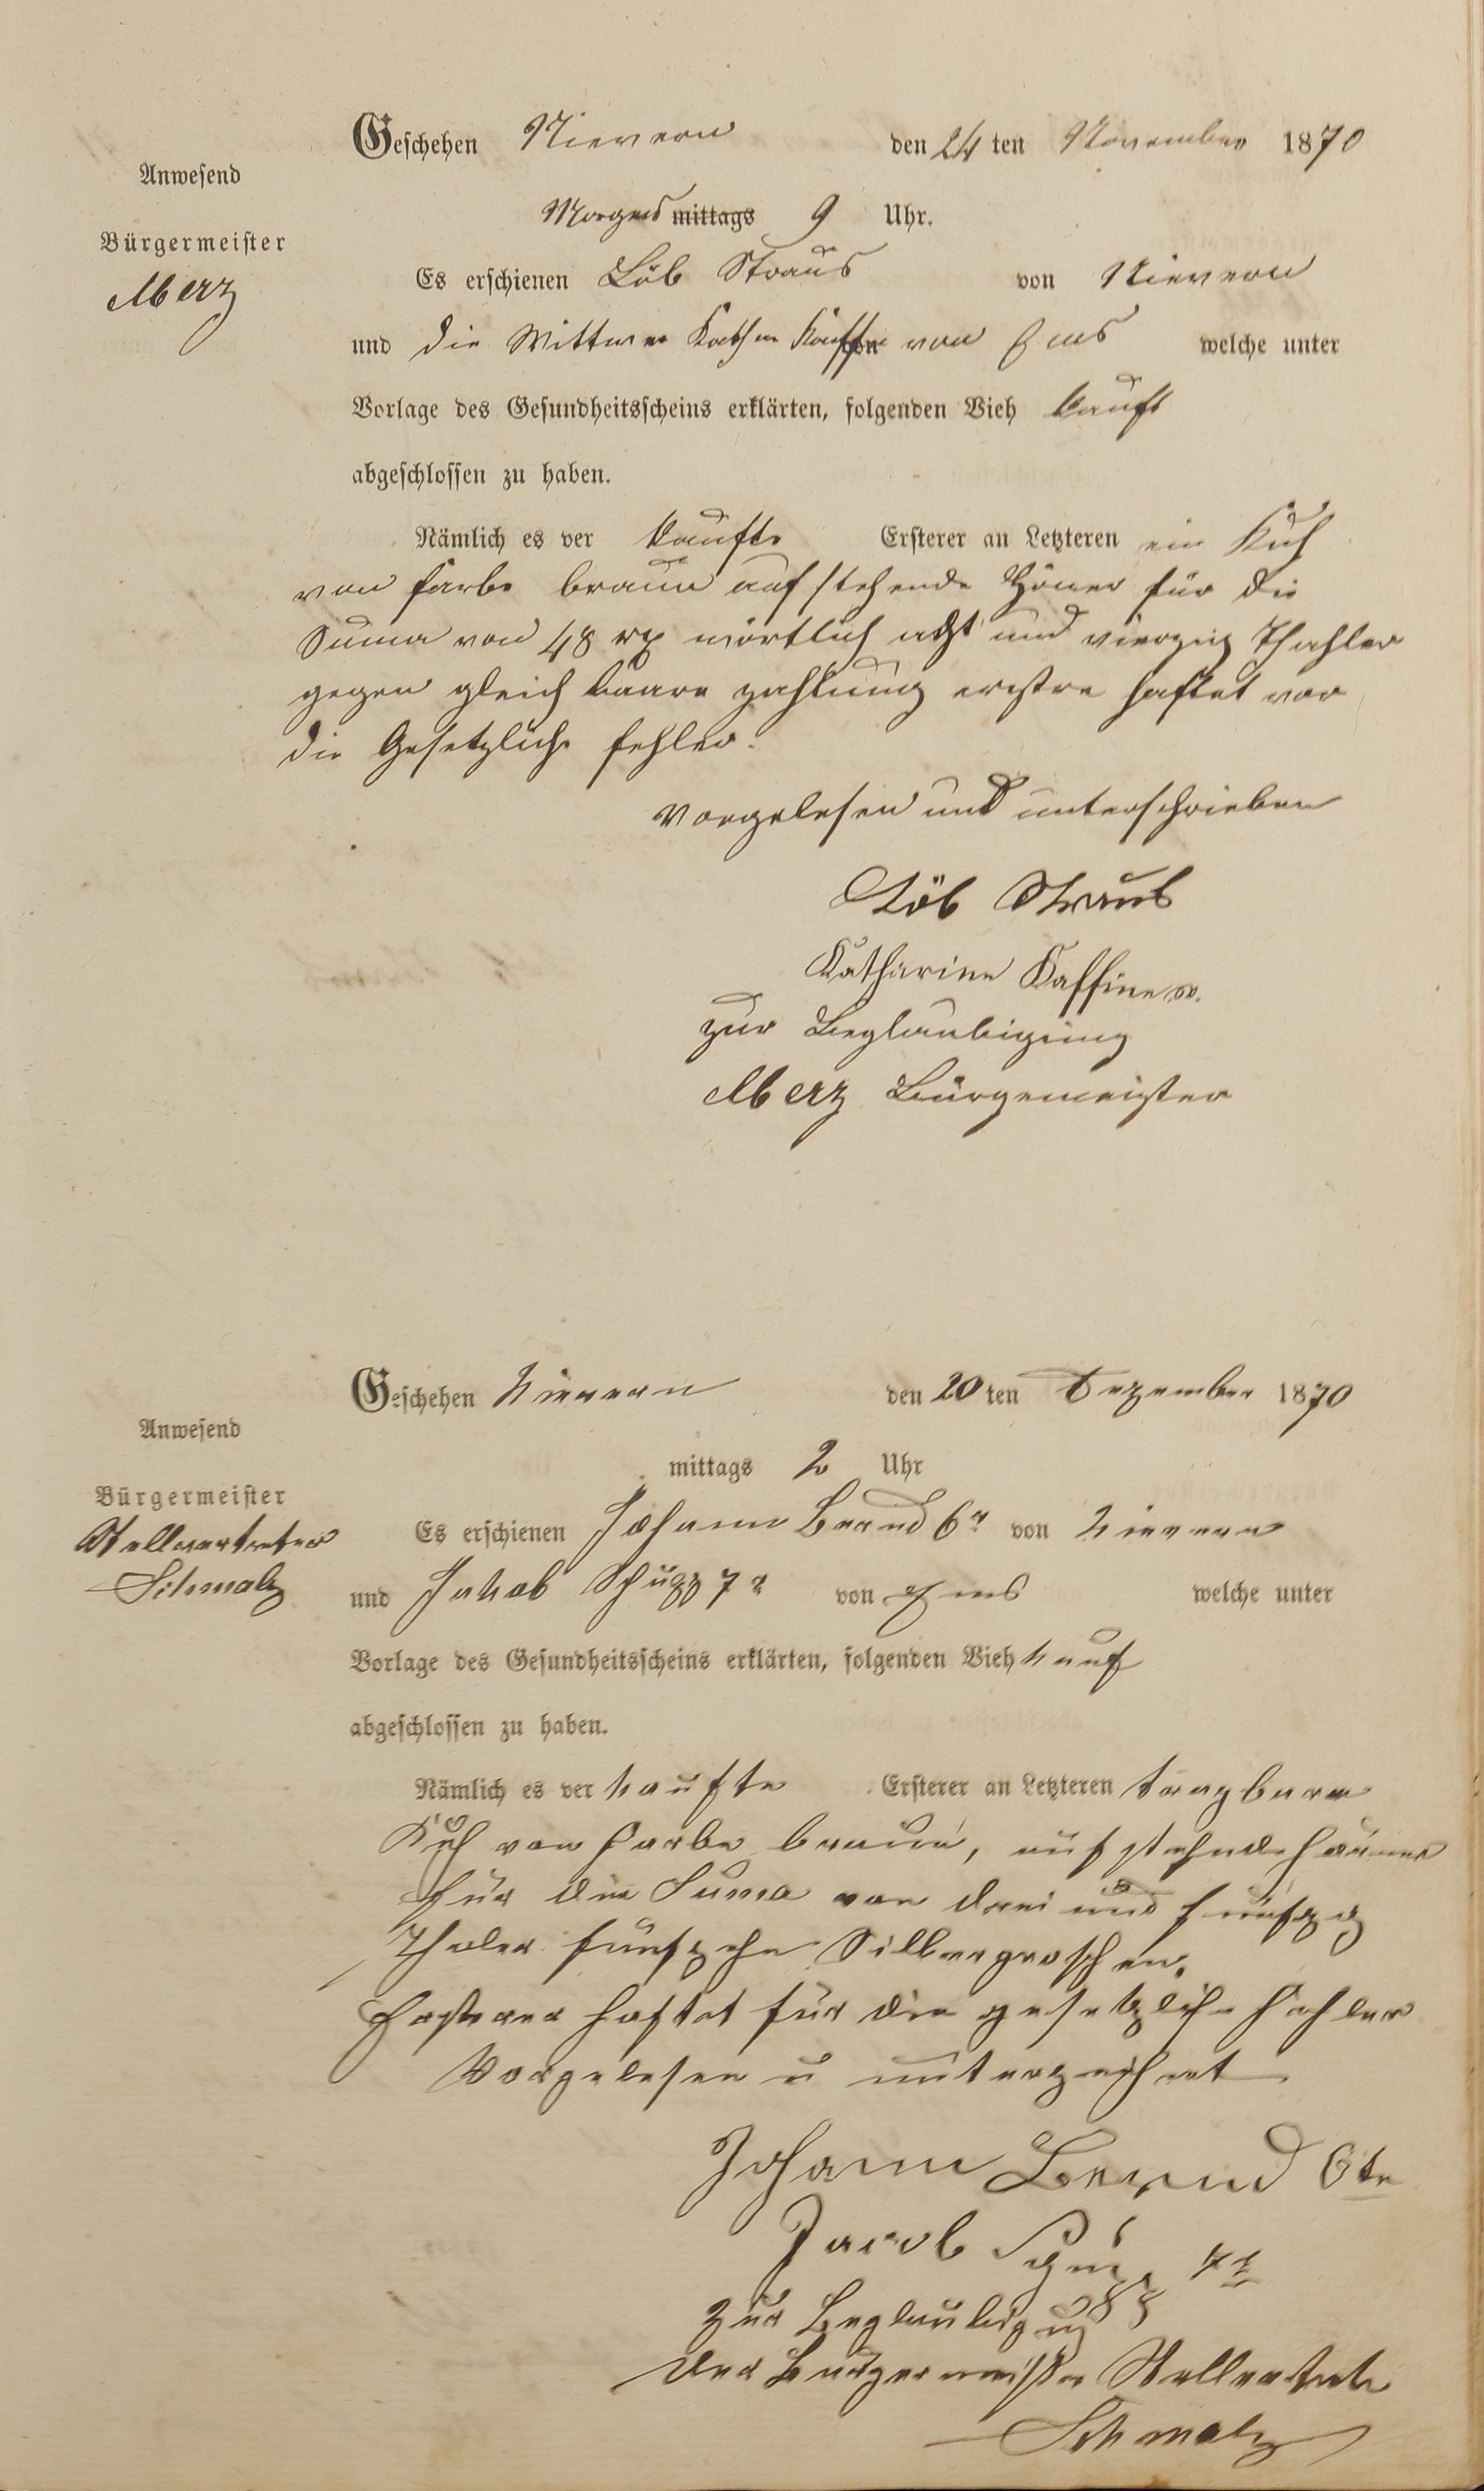 Geschehen Nievern den 24 ten November 1870
Anwesend
Morgens mittags 9 Uhr.
Bürgermeister
Merz
Es erschienen Löb Straus von Nievern
und die Wittwe Kathr von Ems welche unter
Vorlage des Gesundheitsscheins erklärten, folgenden Vieh kauft
abgeschlossen zu haben.
Nämlich es ver kaufte Ersterer an Letzteren ein Kuh
von farbe braun auf stehende Höner für die
Suma von 48 rℓ wörtlich acht und vierzig Thahler
gegen gleich baare zahlung erstre haftet vor
die Gesetzliche fehler.
Vorgelesen und unterschrieben
Löb Straus
Katharine Kaffine w.
zur Beglaubigung
Merz Bürgemeister
Geschehen Nievern den 20 ten Dezember 1870
Anwesend
mittags 2 Uhr
Bürgermeister
Stellvertreter
Schmalz
Es erschienen Johann Bernd 6r von Nievern
und Jakob 7r von Ems welche unter
Vorlage des Gesundheitsscheins erklärten, folgenden Vieh kauf
abgeschlossen zu haben.
Nämlich es ver kaufte Ersterer an Letzteren tragbare
Kuh von Farbe braun, auf stehende Hörner
für die Suma von drei und fünfzig
Thaler fünfzehn Silbergroschen.
Ersterer haftet für die gesetzliche Fehler
Vorgelesen u unterzeichnet
Johann Bernd 6te
Jacob
zur Beglaubigung
der Burgermeister Stellvertreter
Schmalz